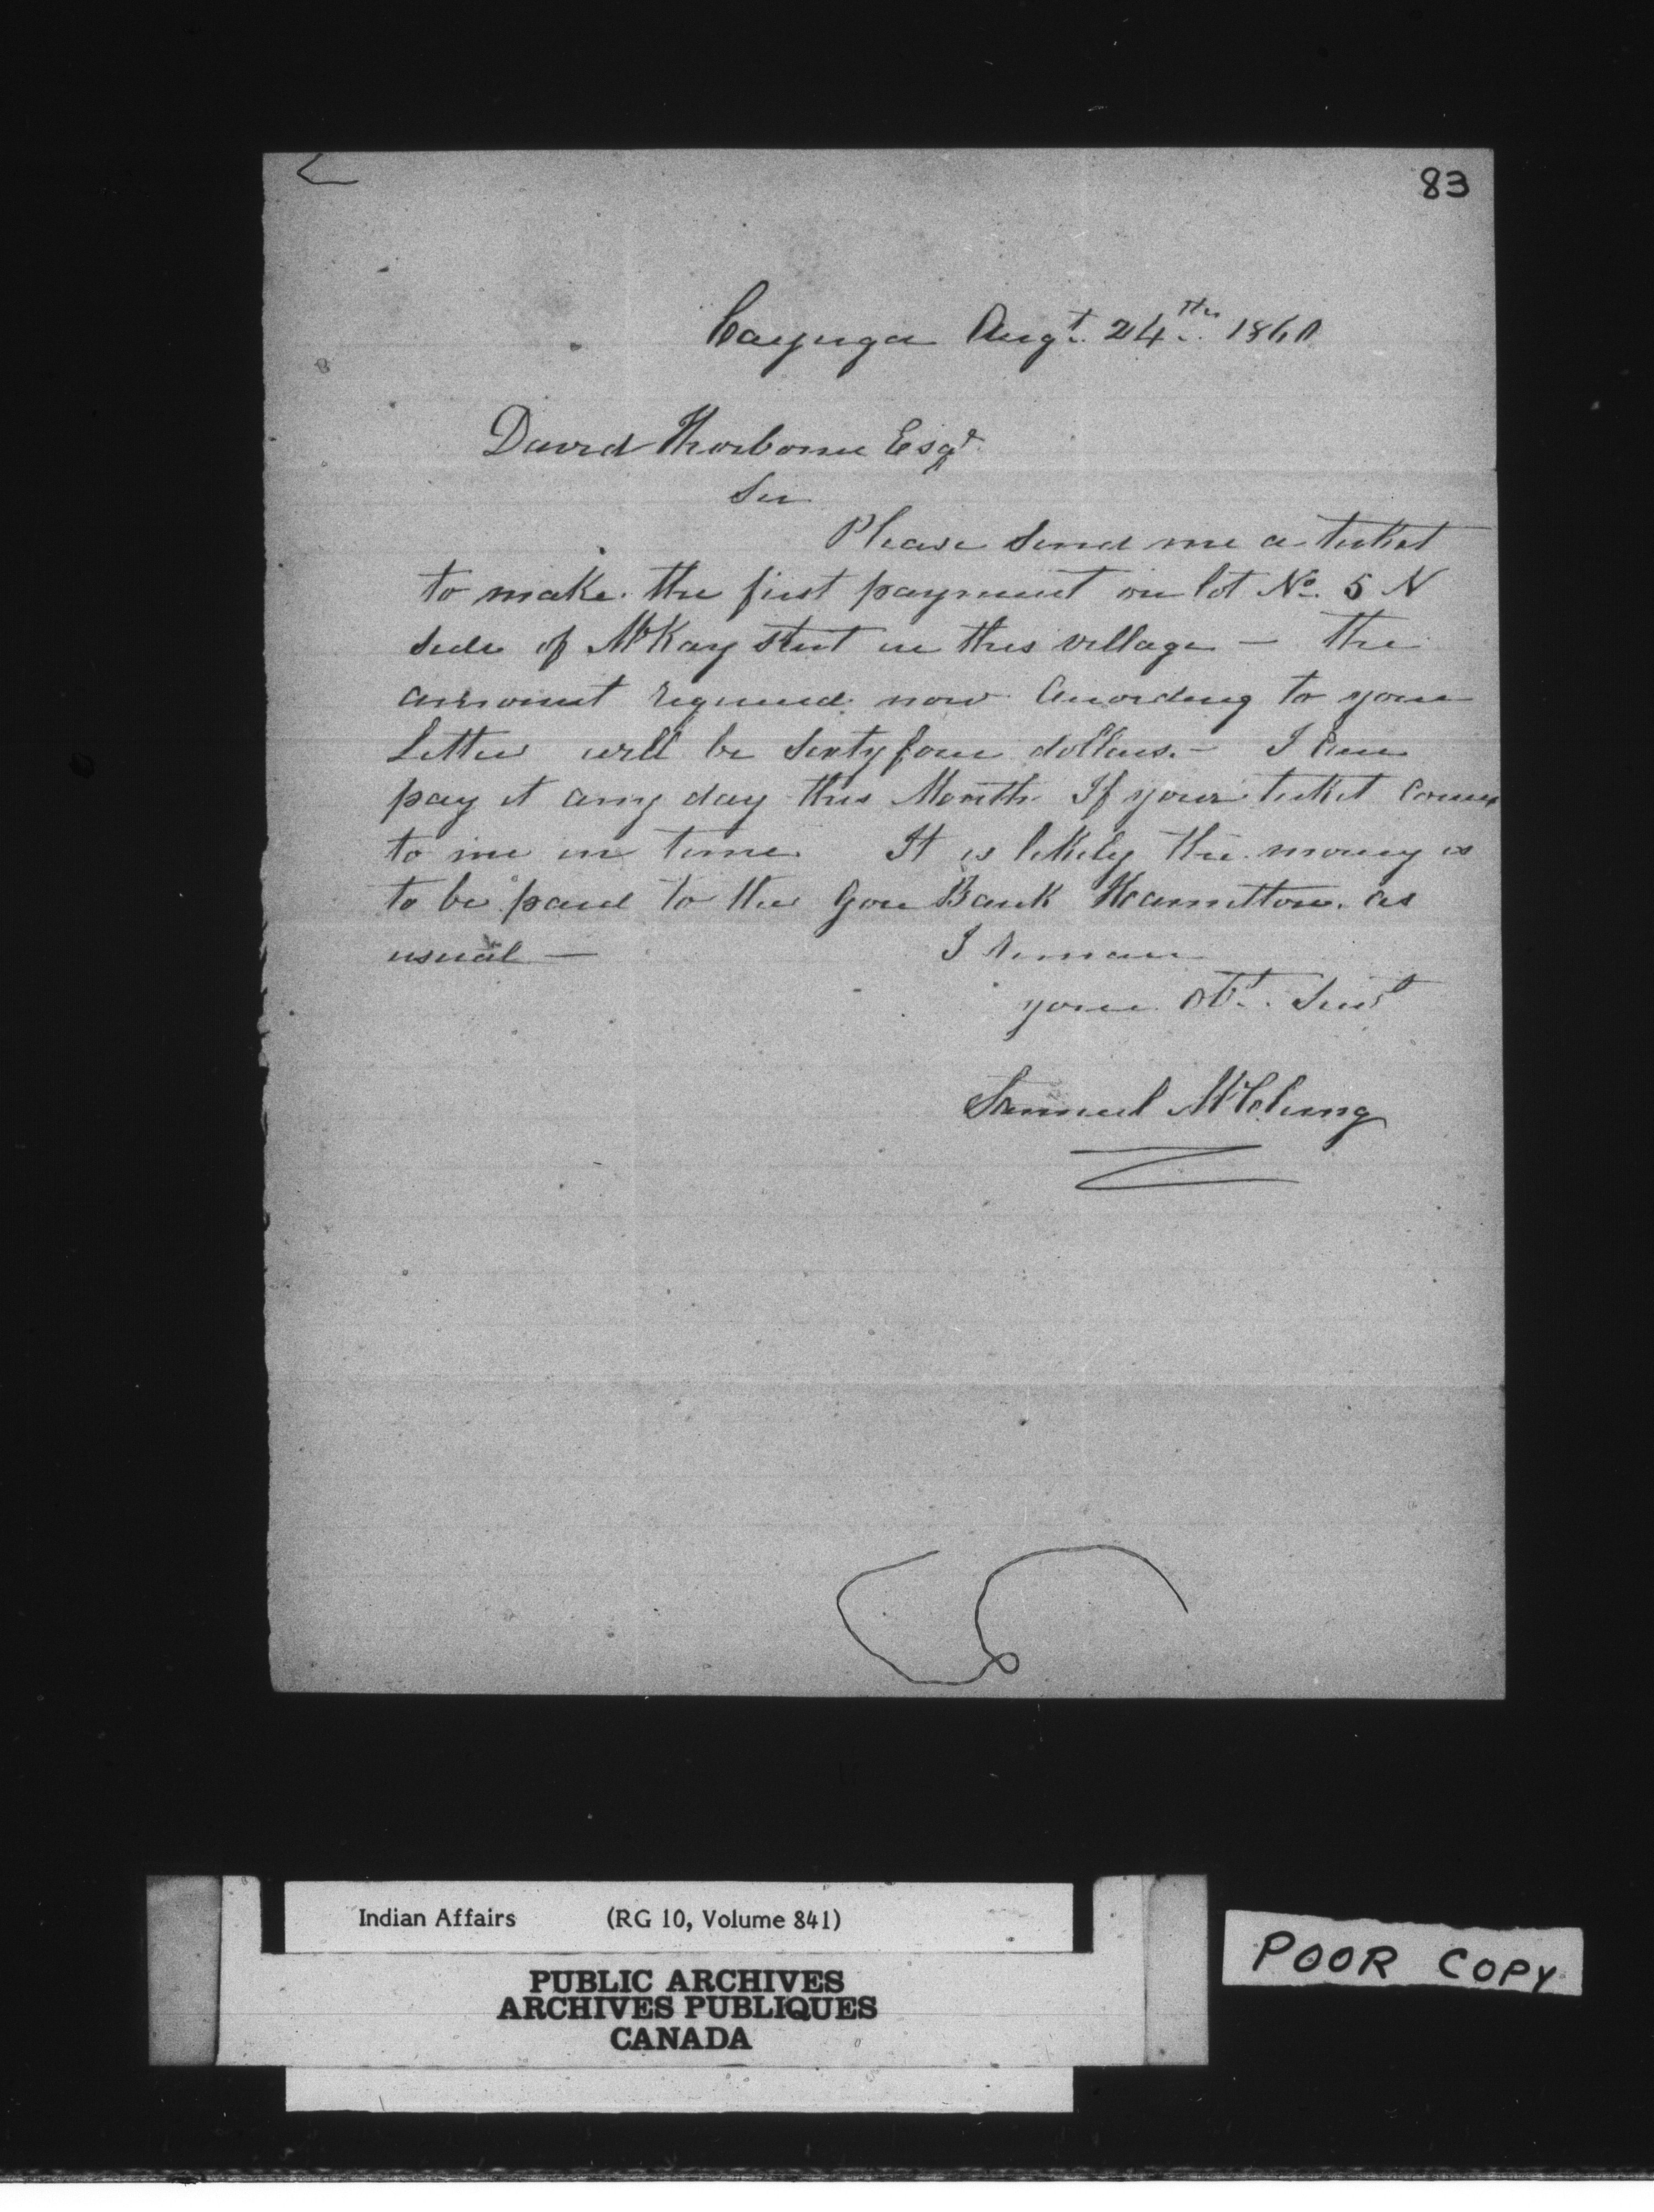 83
Cayuga Augt. 24th. 1860
David Thorborne Esqr
Sir
Please send me a ticket
to make the first payment on lot No. 5 N
side of McKay Street in this village – The
amount required now according to your
letter will be sixty four dollars. – I can
pay it any day this Month If your ticket comes
to me in time It is likely the money is
to be paid to the Gore Bank Hamilton. as
usual –
I remain
your Obt. Servt
Samuel McClung
Indian Affairs (RG 10, Volume 841)
PUBLIC ARCHIVES
ARCHIVES PUBLIQUES
CANADA
POOR COPY